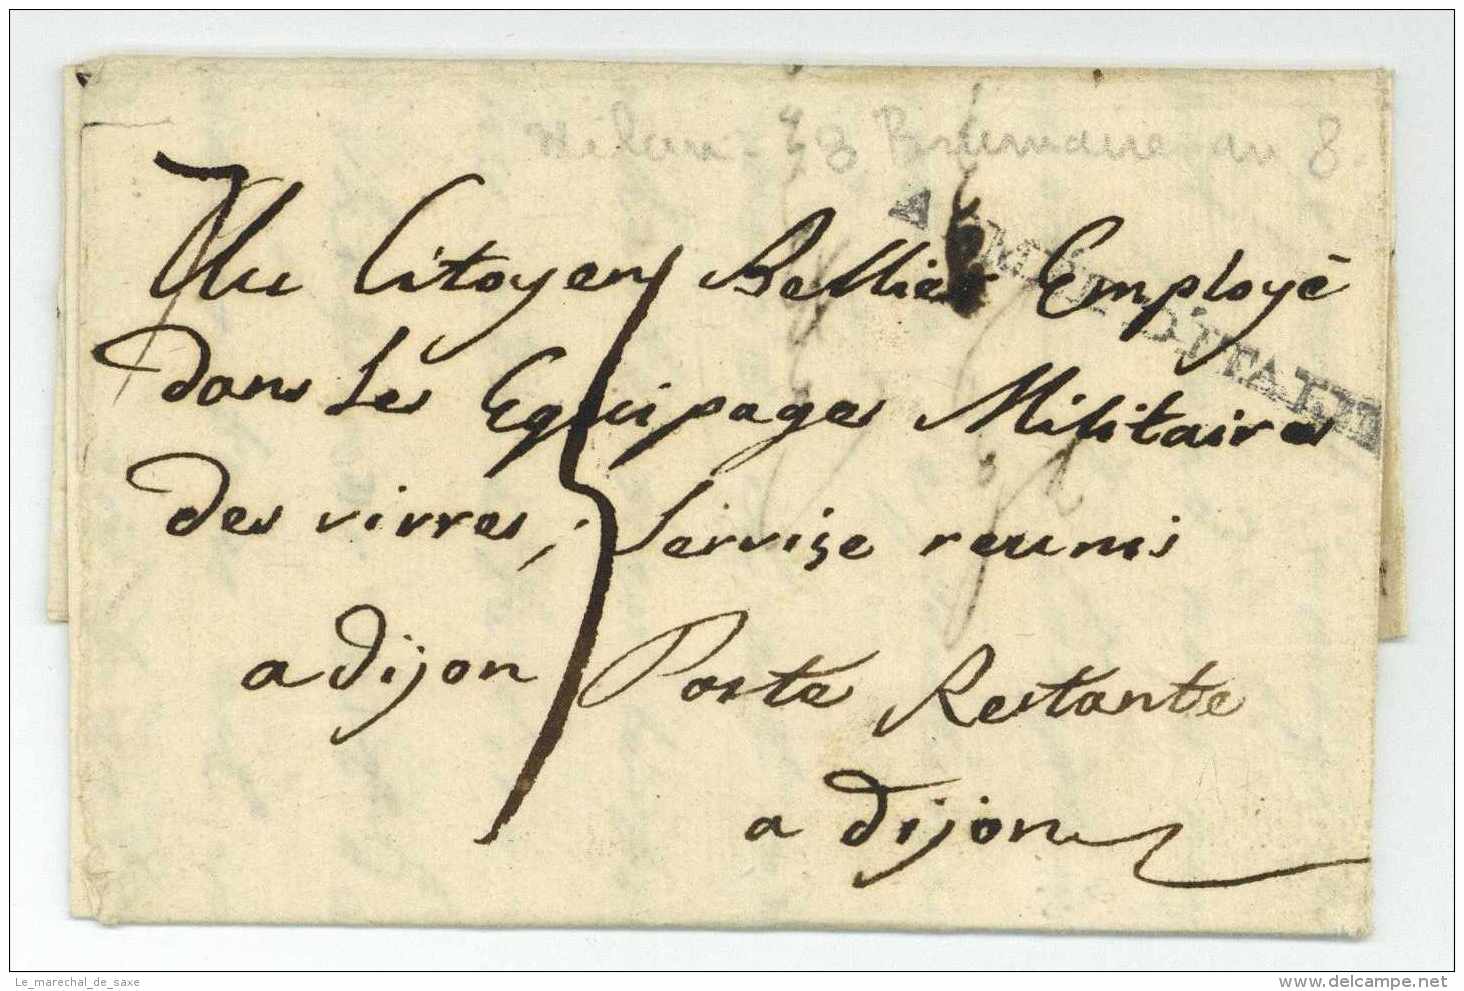 Milan - 23 Brumaire an 8.
ARMÉE D'ITALIE
Au Citoyen Bellier Employé
dans les Equipages Militaires
des vivres, Servise reunis
a dijon Poste Restante
a dijon
Le_marechal_de_saxe
delcampe.net